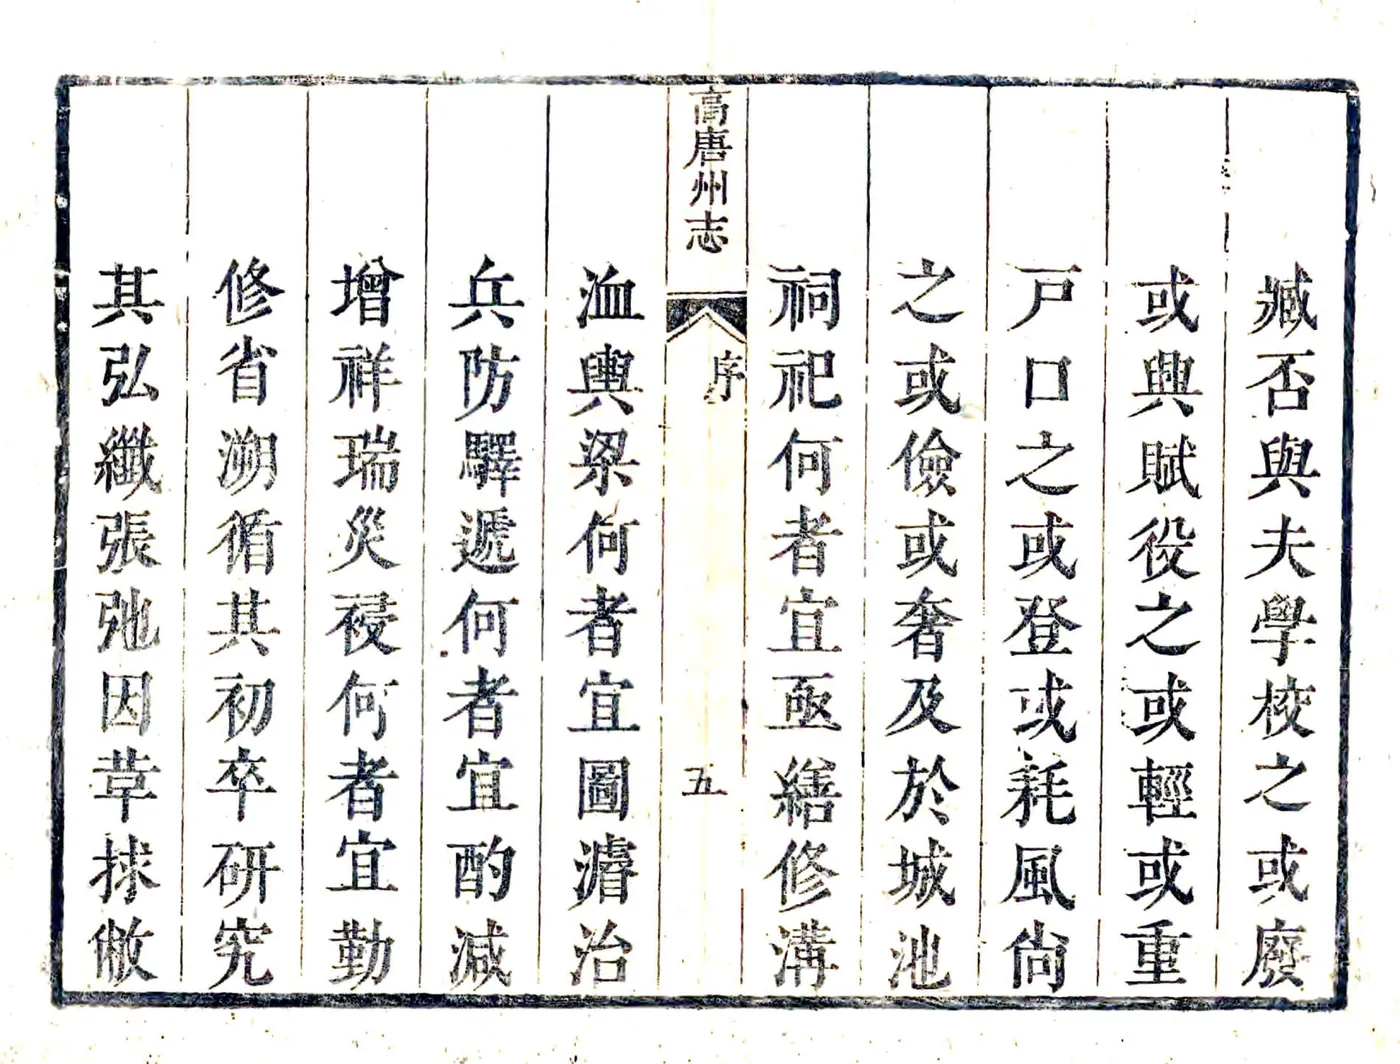 臧否與夫學校之或廢
或興賦役之或輕或重
戸口之或登或耗風尚
之或儉或奢及於城池
祠祀何者宜亟繕修溝
高唐州志
序
五
洫輿梁何者宜圖濬治
兵防驛遞何者宜酌減
增祥瑞災祲何者宜勤
修省溯循其初卒研究
其弘纖張弛因革捄敝